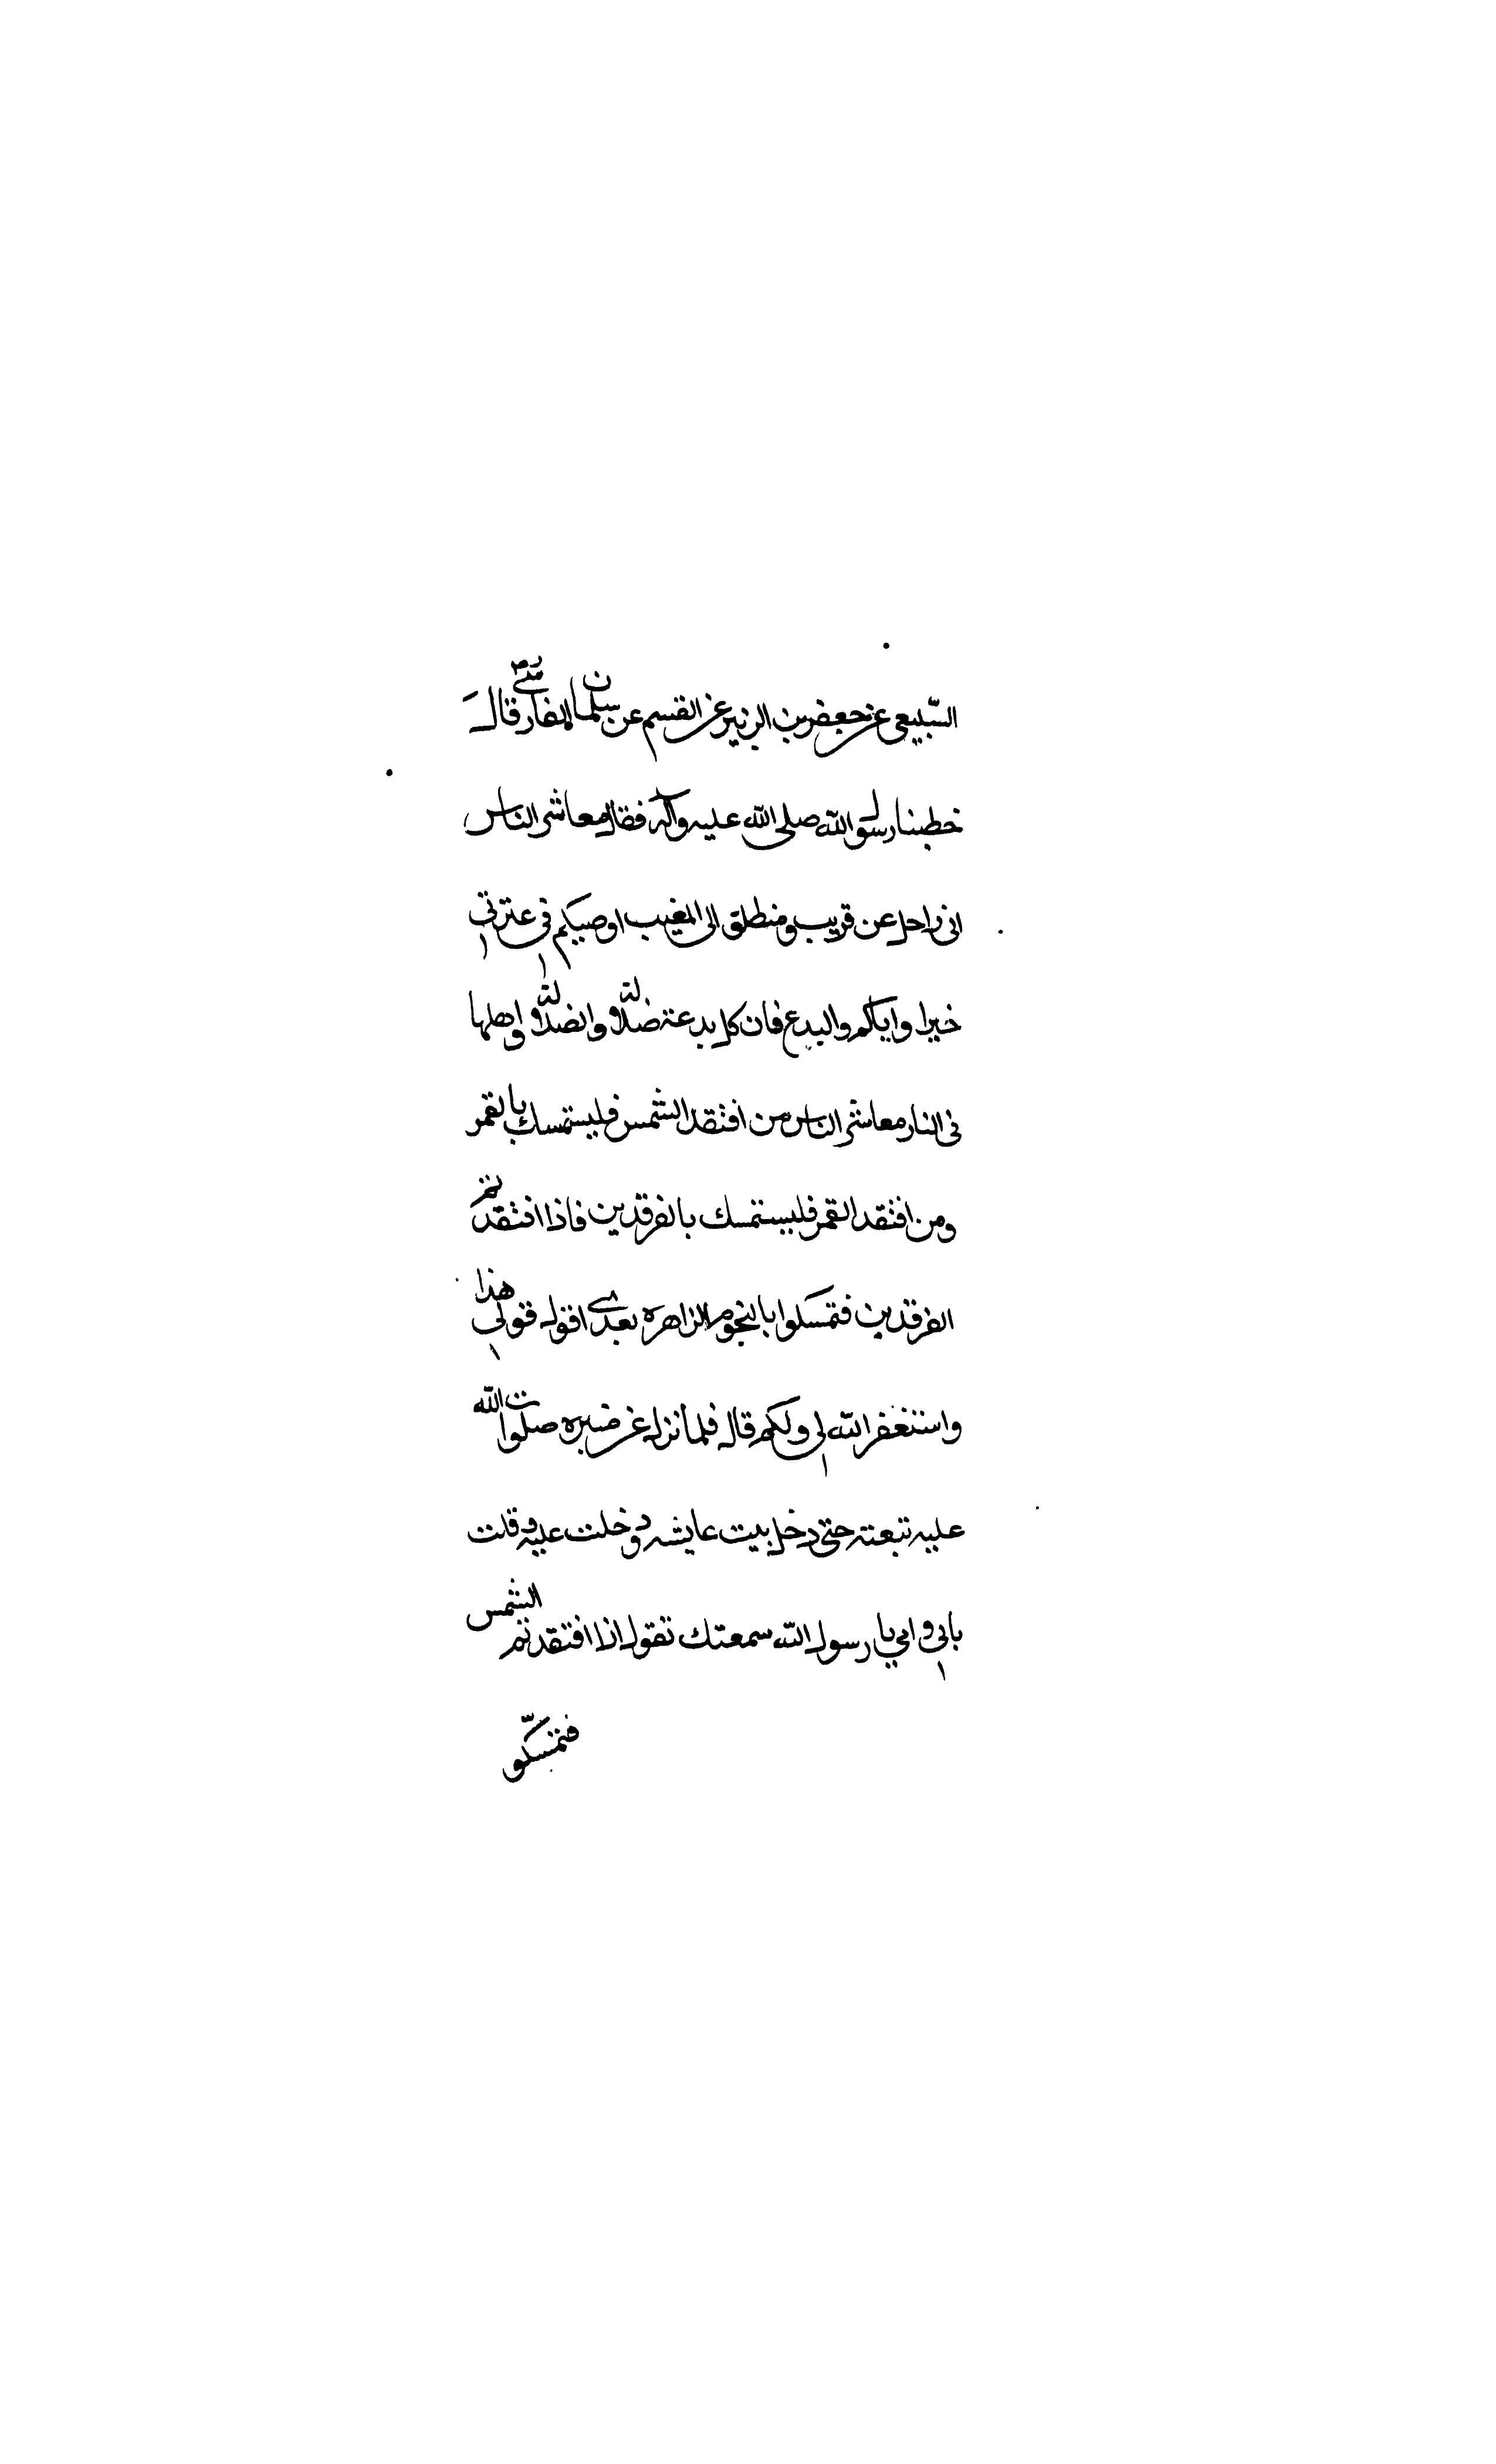 السّبيعي عن جعفر بن الزبير عن القسم عن سلمان الفارسي قال
خطبنا رسول الله صلى الله عليه وآله فقال معاشر الناس
اني راحل عن قريب ومنطلق الى المغيب اوصيكم في عترتي
خيرا واياكم والبدع فان كل بدعة ضلالة والضلالة واهلها
في النار معاشر الناس من افتقد الشمس فليستمسك بالقمر
ومن افتقد القمر فليستمسك بالفرقدين فاذا افتقدتم
الفرقدين فتمسكوا بالنجوم الزاهره بعدي اقول قولي هذا
واستغفر الله لي ولكم قال فلما نزل عن منبره صلوات الله
عليه تبعته حتى دخل بيت عايشه ودخلت عليه وقلت
بابي وامي يا رسول الله سمعتك تقول اذا افتقدتم الشمس
فتمسّكو